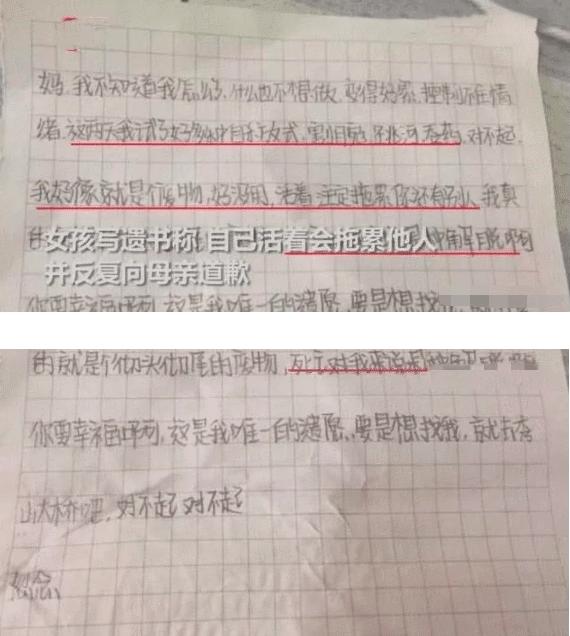 妈,我不知道我怎么了,什么也不想做,变得好累,控制不住情
绪,这两天我试了好多种自杀方式,割腕 跳河 吞药,对不起,
我好像就是个废物,好没用,活着 注定拖累你还有别人 我真
女孩写遗书称 自己活着会拖累他人
并反复向母亲道歉
你要幸福啊,这是我唯一的遗愿,要是想找
的就是个彻头彻尾的废物,死亡对我来说是
你要幸福啊,这是我唯一的遗愿,要是想找我,就去
山大桥吧,对不起 对不起